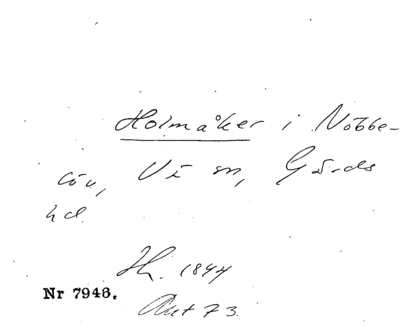 Holmåker i Nöbbe-
löv, Vä sn, Gärds
hd.
Jh. 1844
Nr 7948.
Akt 73.